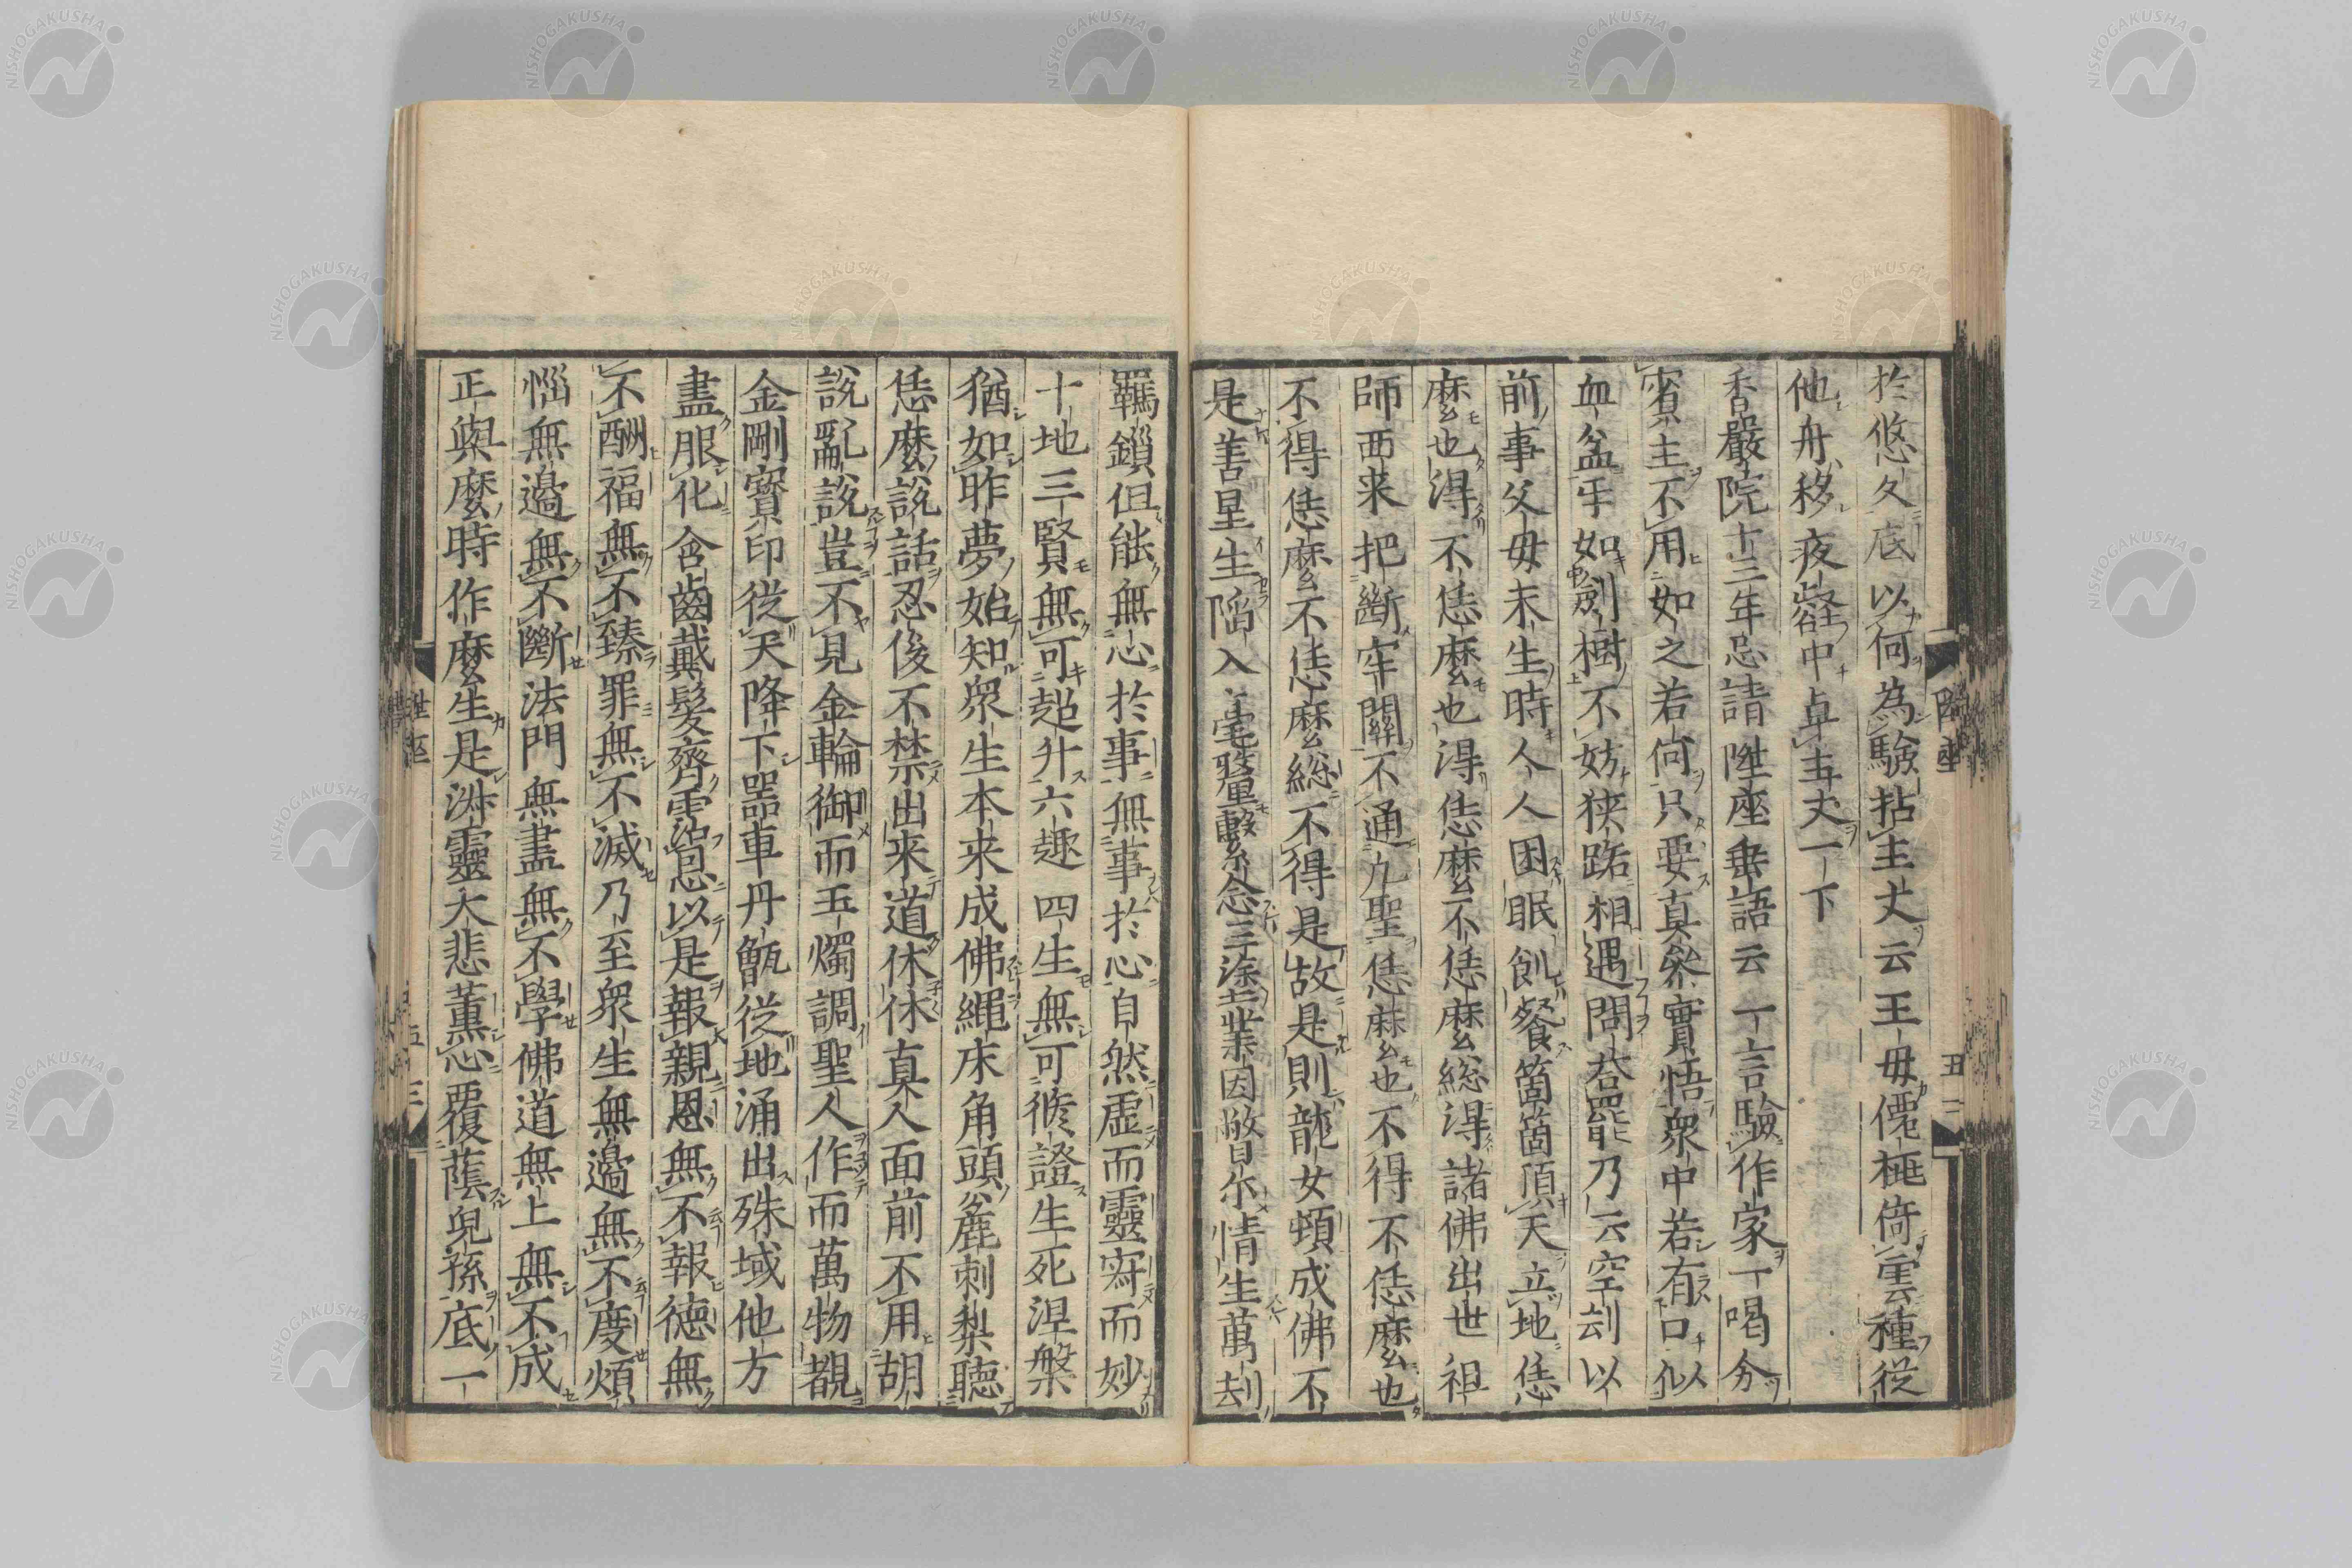 於悠久底以何為驗拈主丈云王母僊桃倚雲種從
他舟移夜壑中卓主丈一下
香嚴院十三年忌請陞座垂語云一言驗作家一喝分
賓主不用如之若何只要真參實悟衆中若有口似
血盆牙如劍樹不妨狹路相遇問答罷乃云空劫以
前事父母未生時人人困眠飢餐箇箇頂天立地恁
麼也得不恁麼也得恁麼不恁麼総得諸佛出世祖
師西来把斷牢關不通凡聖恁麼也不得不恁麼也
不得恁麼不恁麼総不得是故是則龍女頓成佛不
是善星生陷入毫釐繫念三塗業因瞥尓情生萬劫
羈鎖但能無心於事無事於心自然虛而靈寂而妙
十地三賢無可超升六趣四生無可修證生死涅槃
猶如昨夢始知衆生本来成佛繩床角頭麁刺梨聽
恁麼說話忍後不禁出来道休休真人面前不用胡
說亂說豈不見金輪御而玉燭調聖人作而萬物覩
金剛寶印從天降下噐車丹甑從地涌出殊域他方
盡服化含齒戴髮齊霑恩以是報親恩無不報德無
不酬福無不臻罪無不滅乃至衆生無邊無不度煩
惱無邊無不斷法門無盡無不學佛道無上無不成
正與麼時作麼生是淋靈大悲薰心覆蔭兒孫底一
陞座
NISHOGAKUSHA